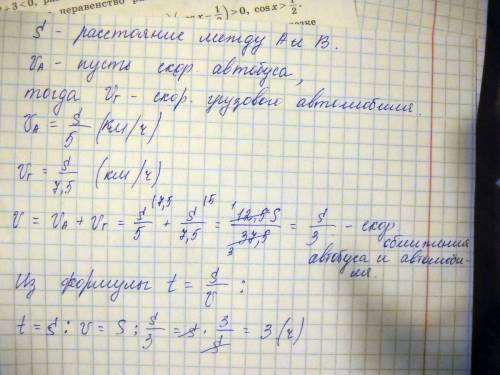 + 3 < 0, неравенство (cos x − 1/2) > 0, cos x > 1/2.
S - расстояние между A и B.
v_A - пусть скор. автобуса,
тогда v_г - скор. грузового автомобиля.
v_A = S/5 (км/ч)
v_г = S/7,5 (км/ч)
v = v_A + v_г = S/5 |7,5 + S/7,5 |5 = 12,5 S/37,5 = S/3 - скор. сближения автобуса и автомобиля.
1
3
Из формулы t = S/v :
t = S : v = S : S/3 = S · 3/S = 3 (ч)